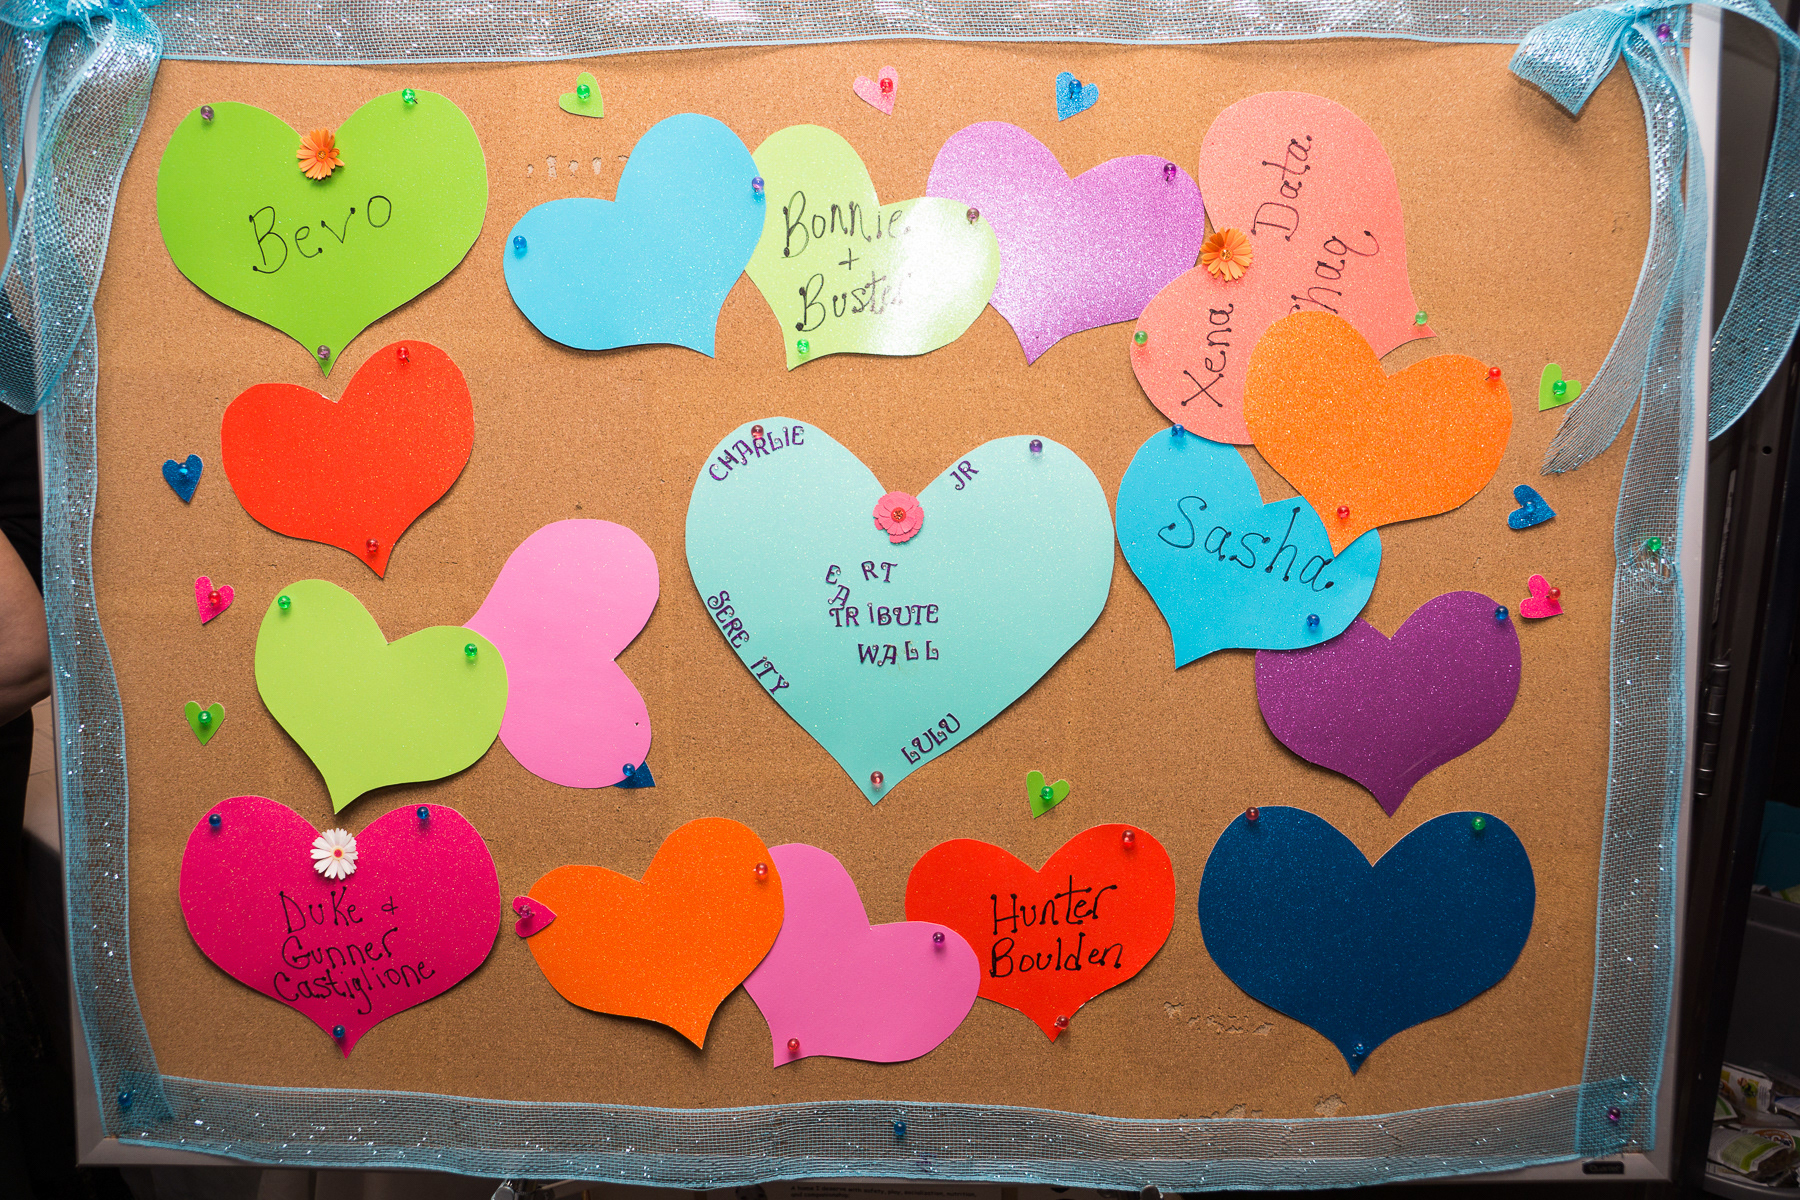 Bevo
Bonnie
+
Buster
Data.
Xena
CHARLIE
JR
E RT
A
TRIBUTE
WALL
SERE ITY
LULU
Sasha
Duke +
Gunner
Castiglione
Hunter
Boulden